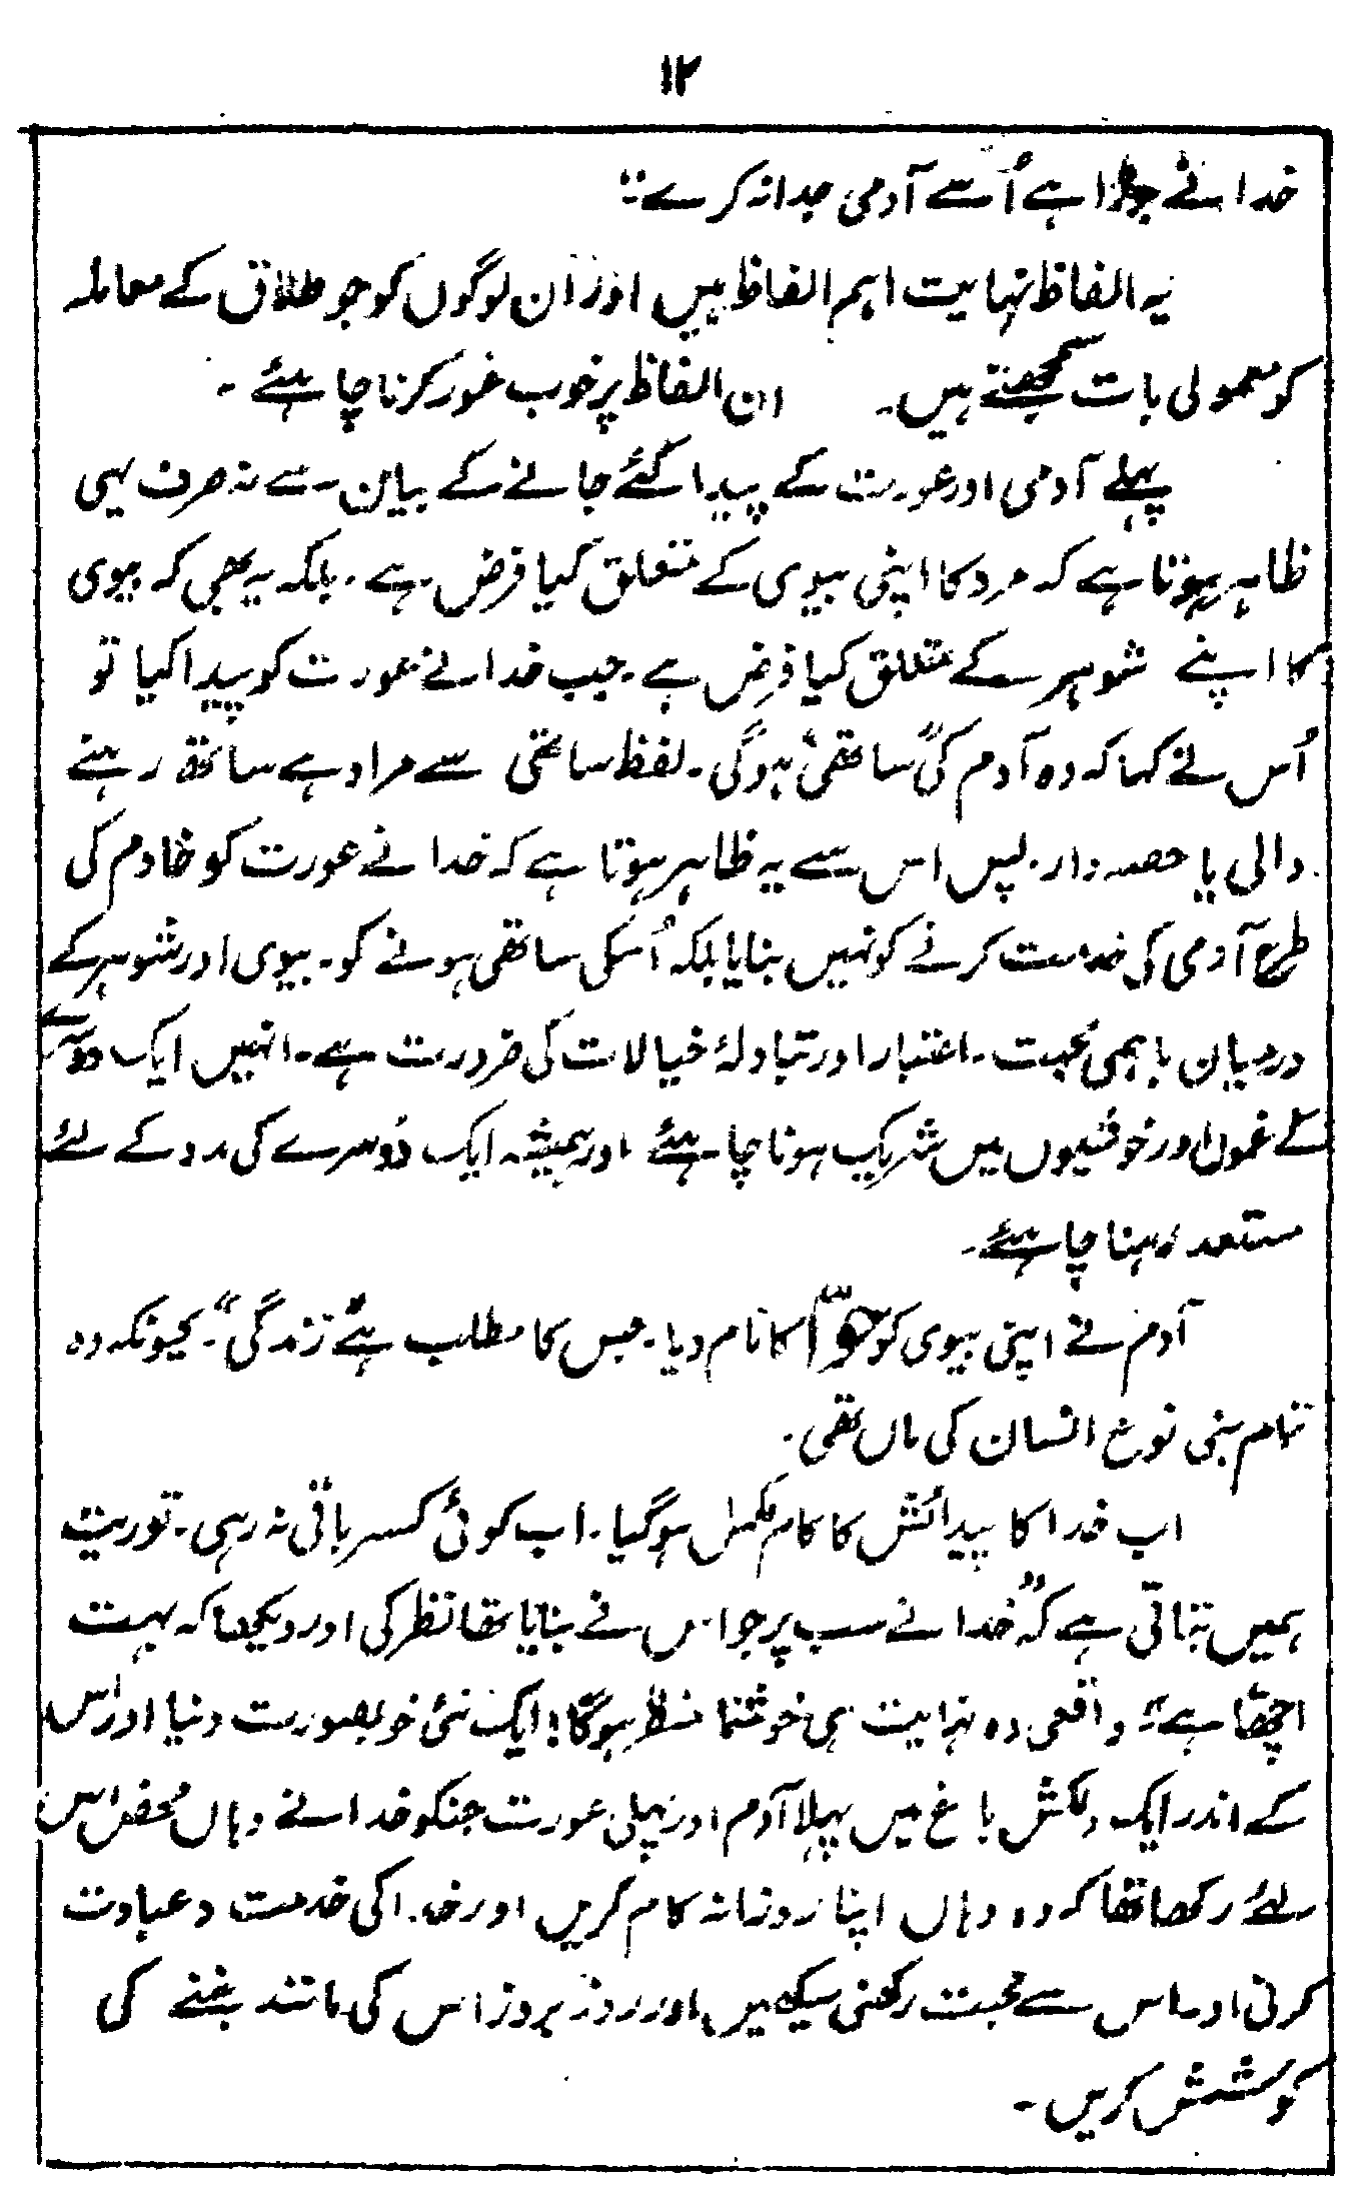 ۱۲
خدا نے جوڑا ہے اُسے آدمی جدا نہ کرے"
یہ الفاظ نہایت اہم الفاظ ہیں اور ان لوگوں کو جو طلاق کے معاملہ
کو معمولی بات سمجھتے ہیں۔ ان الفاظ پر خوب غور کرنا چاہئے ۔
پہلے آدمی اور عورت کے پیدا کئے جانے کے بیان سے نہ صرف یہی
ظاہر ہوتا ہے کہ مرد کا اپنی بیوی کے متعلق کیا فرض ہے ۔ بلکہ یہ بھی کہ بیوی
کا اپنے شوہر کے متعلق کیا فرض ہے ۔ جب خدا نے عورت کو پیدا کیا تو
اُس نے کہا کہ وہ آدم کی "ساتھی" ہوگی ۔ لفظ ساتھی سے مراد ہے ساتھ رہنے
والی یا حصہ دار ۔ پس اس سے یہ ظاہر ہوتا ہے کہ خدا نے عورت کو خادم کی
طرح آدمی کی خدمت کرنے کو نہیں بنایا بلکہ اُسکی ساتھی ہونے کو ۔ بیوی اور شوہر کے
درمیان باہمی محبت ۔ اعتبار اور تبادلۂ خیالات کی ضرورت ہے ۔ انہیں ایک دوسرے
کے غموں اور خوشیوں میں شریک ہونا چاہئے اور ہمیشہ ایک دُوسرے کی مدد کے لئے
مستعد رہنا چاہئے ۔
آدم نے اپنی بیوی کو حوّا کا نام دیا ۔ جس کا مطلب ہے "زندگی" ۔ کیونکہ وہ
تمام بنی نوع انسان کی ماں تھی ۔
اب خدا کا پیدائش کا کام مکمل ہوگیا ۔ اب کوئی کسر باقی نہ رہی ۔ توریت
ہمیں بتاتی ہے کہ "خدا نے سب پر جو اس نے بنایا تھا نظر کی اور دیکھا کہ بہت
اچھّا ہے" واقعی وہ نہایت ہی خوشنما منظر ہوگا! ایک نئی خوبصورت دنیا اور اس
کے اندر ایک دلکش باغ میں پہلا آدم اور پہلی عورت جنکو خدا نے وہاں محض اس
لئے رکھا تھا کہ وہ وہاں اپنا روزانہ کام کریں اور خدا کی خدمت و عبادت
کرنی اور اس سے محبت رکھنی سیکھیں اور روز بروز اس کی مانند بننے کی
کوشش کریں ۔